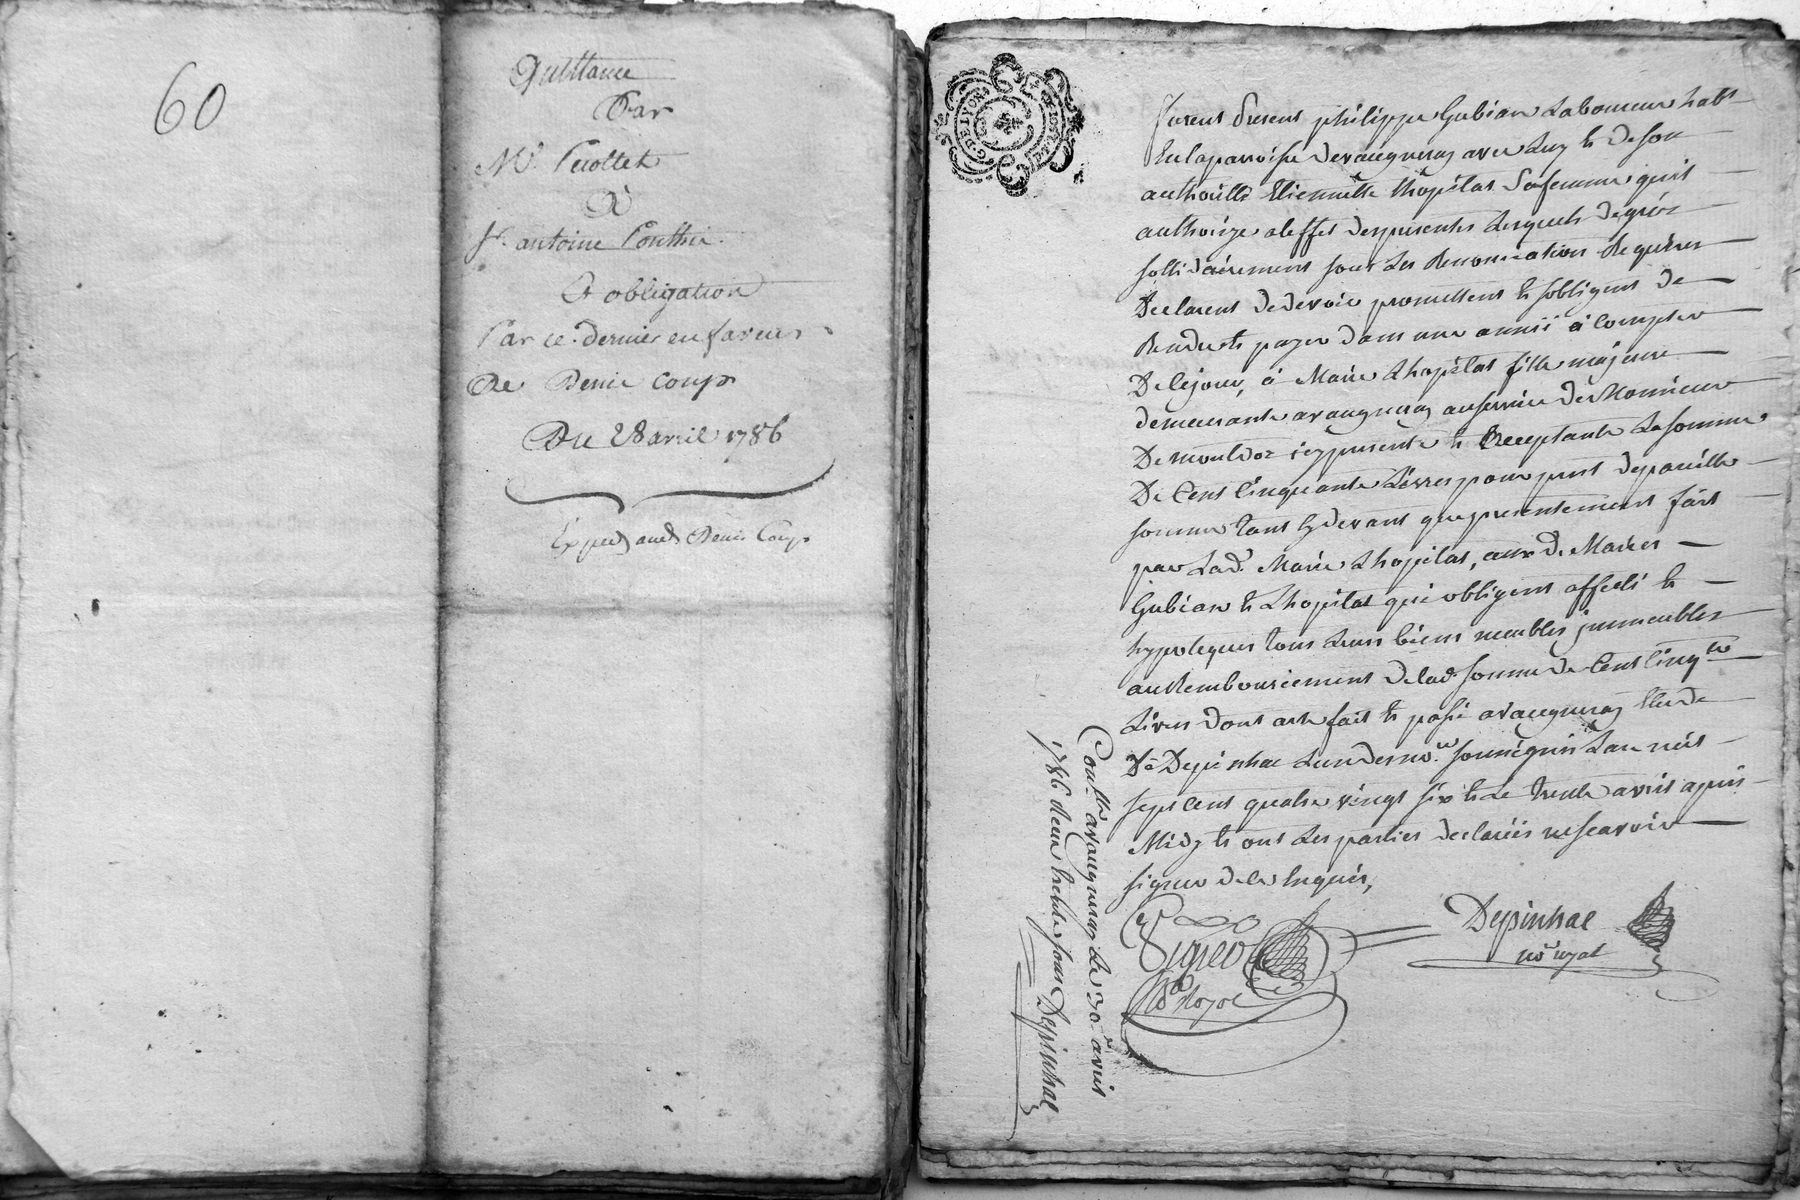 60
Quittance
Par
Mr Perollet
à
Sr. antoine Ponthu
Et obligation
Par ce dernier en faveur
De Denis Coup
Du 28 avril 1786
Exped aud Denis Coup
G. DE LYON
furent Presens philippe Gubian Laboureur habt
En la parroisse devaugneray avec Luy Et de son
authorité Etiennette thopital Sa femme quil
authorize aleffet des presentes Lesquels de gréz
sollidairement sous Les Renonciations Requises
Declarent de devoir promettent Et sobligent de
Rendre Et payer dans une année à Compter
De Cejour, à Marie Lhopital fille majeure
demeurante avaugneray auservice de Monsieur
De montdor icy presente Et acceptante La somme
De Cent Cinquante Livres pour prest depareille
somme tant cy devant que presentement fait
par Lad. Marie Lhopital, aux d. Mariés
Gubian Et Lhopital qui obligent affecte Et
hypoteques tous Leurs biens meubles jmmeubles
au Remboursement de lad. somme de Cent Cinqte
Livres dont acte fait Et passé avaugneray Etude
De Depinhac Lun des nores soussignés Lan mil
sept Cent quatre vingt six Et Le trente avril apres
Midy Et ont Les parties declarées ne scavoir
signer de ce Enquis,
Depinhac
nore royal
Nre Royal
Conllé avaugneray Le 30. avril
1786 deux Livres sous Depinhac